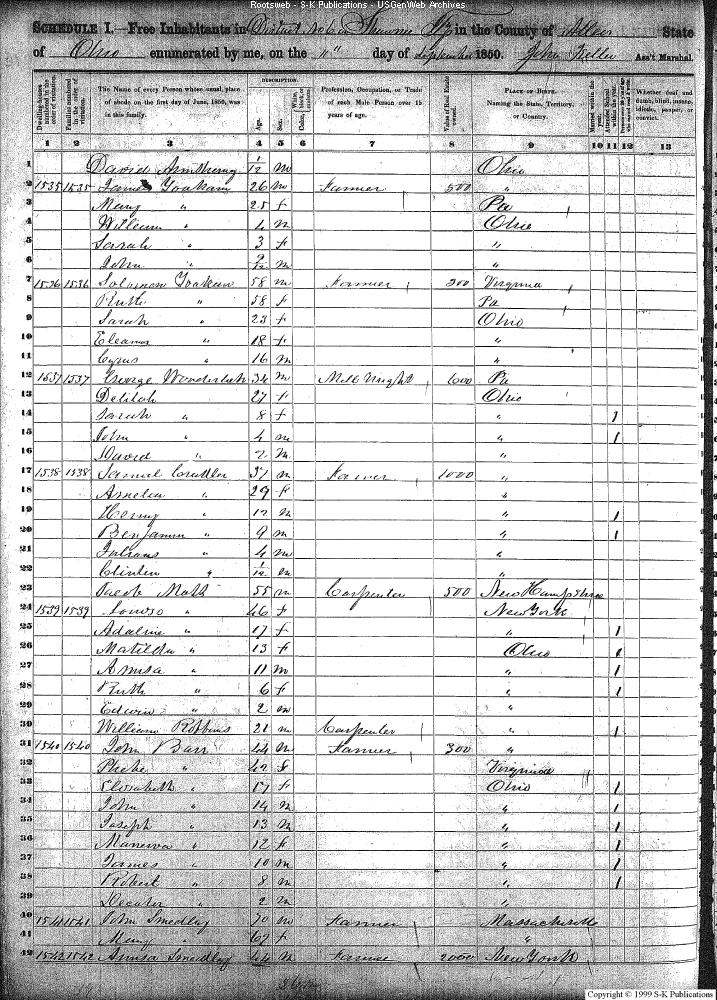 Rootsweb - S-K Publications - USGenWeb Archives
SCHEDULE I.—Free Inhabitants in District No 6 Shawnee Tp in the County of Allen State
of Ohio enumerated by me, on the 11" day of September 1850. John Keller Ass't Marshal.
Dwelling-houses numbered in the order of visitation.
Families numbered in the order of visitation.
The Name of every Person whose usual place of abode on the first day of June, 1850, was in this family.
DESCRIPTION.
Age.
Sex.
White, black, or mulatto.
Color,
Profession, Occupation, or Trade of each Male Person over 15 years of age.
Value of Real Estate owned.
PLACE OF BIRTH.
Naming the State, Territory, or Country.
Married within the year.
Attended School within the year.
Whether deaf and dumb, blind, insane, idiotic, pauper, or convict.
1 2 3 4 5 6 7 8 9 10 11 12 13
1 David 1/12 m Ohio
2 1535 1535 James Yoakam 26 m Farmer 500 "
3 Mary " 25 f Pa
4 William " 4 m Ohio
5 Sarah " 3 f "
6 John " 9/12 m "
7 1536 1536 Solomon Yoakam 58 m Farmer 200 Virginia
8 Ruth " 58 f Pa
9 Sarah " 23 f Ohio
10 Eleanor " 18 f "
11 Cyrus " 16 m "
12 1537 1537 George 34 m Mill Wright 600 Pa
13 Delilah 27 f Ohio
14 Sarah " 8 f " 1
15 John " 4 m " 1
16 David " 2 m "
17 1538 1538 Samuel 37 m Farmer 1000 "
18 Amelia " 29 f "
19 Henry " 12 m " 1
20 Benjamin " 9 m " 1
21 " 4 m "
22 Clinton " 1/12 m "
23 Jacob Mott 55 m Carpenter 500 New Hampshire
24 1539 1539 " 46 f New York
25 Adaline " 17 f " 1
26 Matilda " 13 f Ohio 1
27 Amsa " 11 m " 1
28 Ruth " 6 f " 1
29 Edwin " 2 m "
30 William Robbins 21 m Carpenter " 1
31 1540 1540 John Barr 44 m Farmer 300 "
32 Phebe " 42 f Virginia
33 Elizabeth " 17 f Ohio 1
34 John " 14 m " 1
35 Joseph " 13 m " 1
36 Manerva " 12 f " 1
37 James " 10 m " 1
38 Robert " 8 m " 1
39 Decator " 2 m "
40 1541 1541 John Smedley 70 m Farmer Massachusetts
41 Mary " 67 f "
42 1542 1542 Amsa Smedley 44 m Farmer 2000 New York
Copyright © 1999 S-K Publications